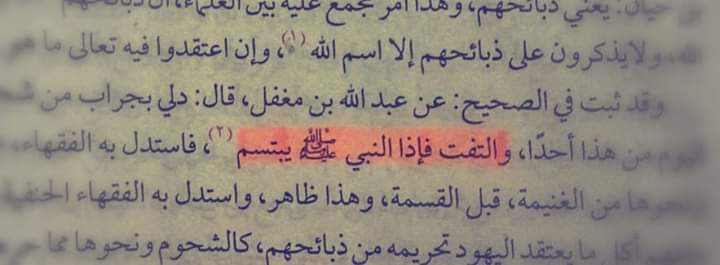 حيان: يعني ذبائحهم، وهذا أمر مجمع عليه بين العلماء، أن ذبائحهم
ولا يذكرون على ذبائحهم إلا اسم الله (١)، وإن اعتقدوا فيه تعالى ما هو
وقد ثبت في الصحيح: عن عبد الله بن مغفل، قال: دلي بجراب من شحم
اليوم من هذا أحدًا، والتفت فإذا النبي ﷺ يبتسم (٢)، فاستدل به الفقهاء،
ونحوها من الغنيمة، قبل القسمة، وهذا ظاهر، واستدل به الفقهاء الحنفية
أكل ما يعتقد اليهود تحريمه من ذبائحهم، كالشحوم ونحوها مما